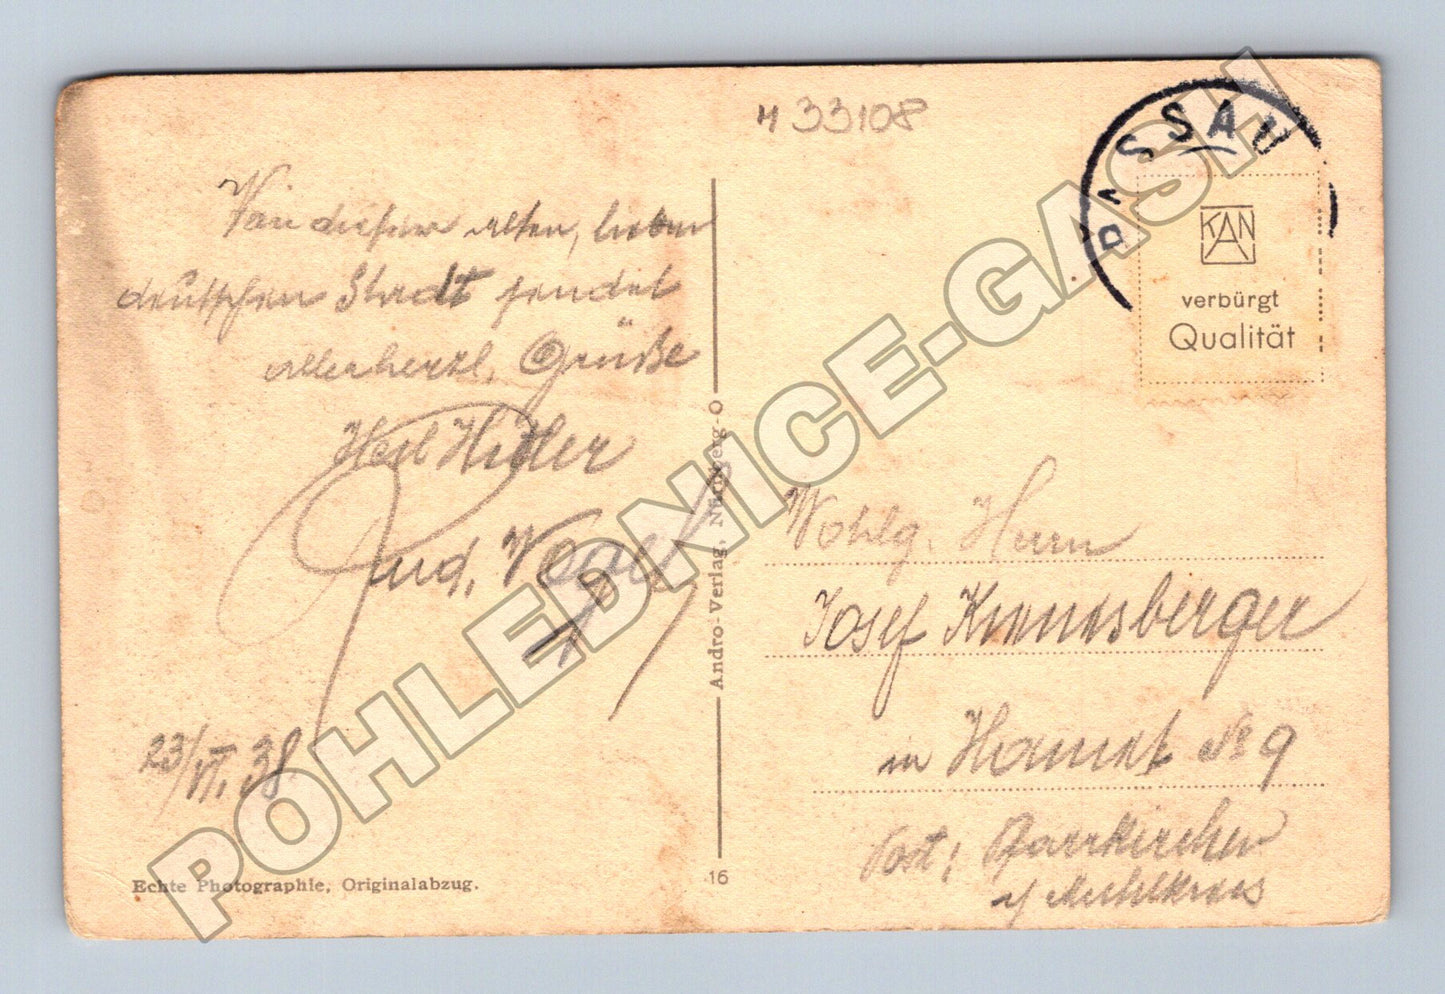 33108
PASSAU
KAN
verbürgt
Qualität
Von dieser alten, lieben
deutschen Stadt sendet
allerherzl. Grüße
Heil Hitler
23/VI. 38
Echte Photographie, Originalabzug.
Andro-Verlag, Nürnberg-O
16
Wohlg. Herrn
Josef
in No 9
Post: Pfarrkirchen
Mühlkreis
POHLEDNICE-GASH